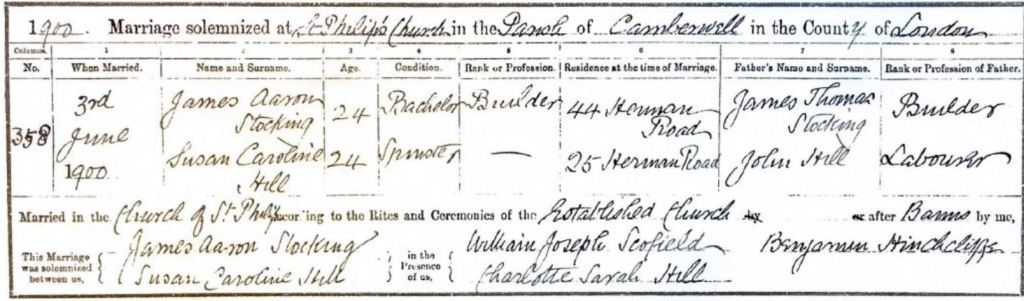 1900. Marriage solemnized at St Philip's Church in the Parish of Camberwell in the County of London
Columns 1 2 3 4 5 6 7 8
No. When Married. Name and Surname. Age. Condition. Rank or Profession. Residence at the time of Marriage. Father's Name and Surname. Rank or Profession of Father.
358 3rd June 1900 James Aaron Stocking 24 Bachelor Builder 44 Herman Road James Thomas Stocking Builder
Susan Caroline Hill 24 Spinster — 25 Herman Road John Hill Labourer
Married in the Church of St Philip according to the Rites and Ceremonies of the Established Church by or after Banns by me,
This Marriage was solemnized between us, James Aaron Stocking in the Presence of us, William Joseph Scofield Benjamin Hinchcliffe
Susan Caroline Hill Charlotte Sarah Hill